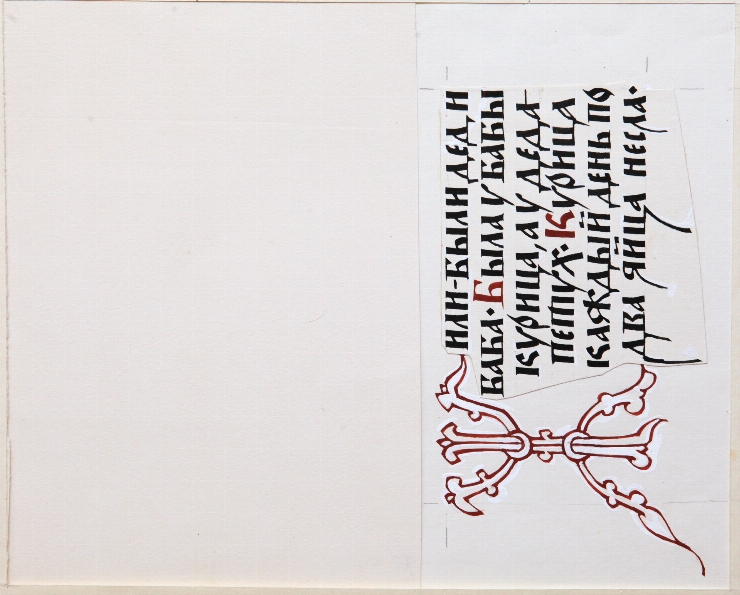 Жили-были дед, и
баба. Была у бабы
курица, а у деда-
петух. Курица
каждый день по
два яйца несла.